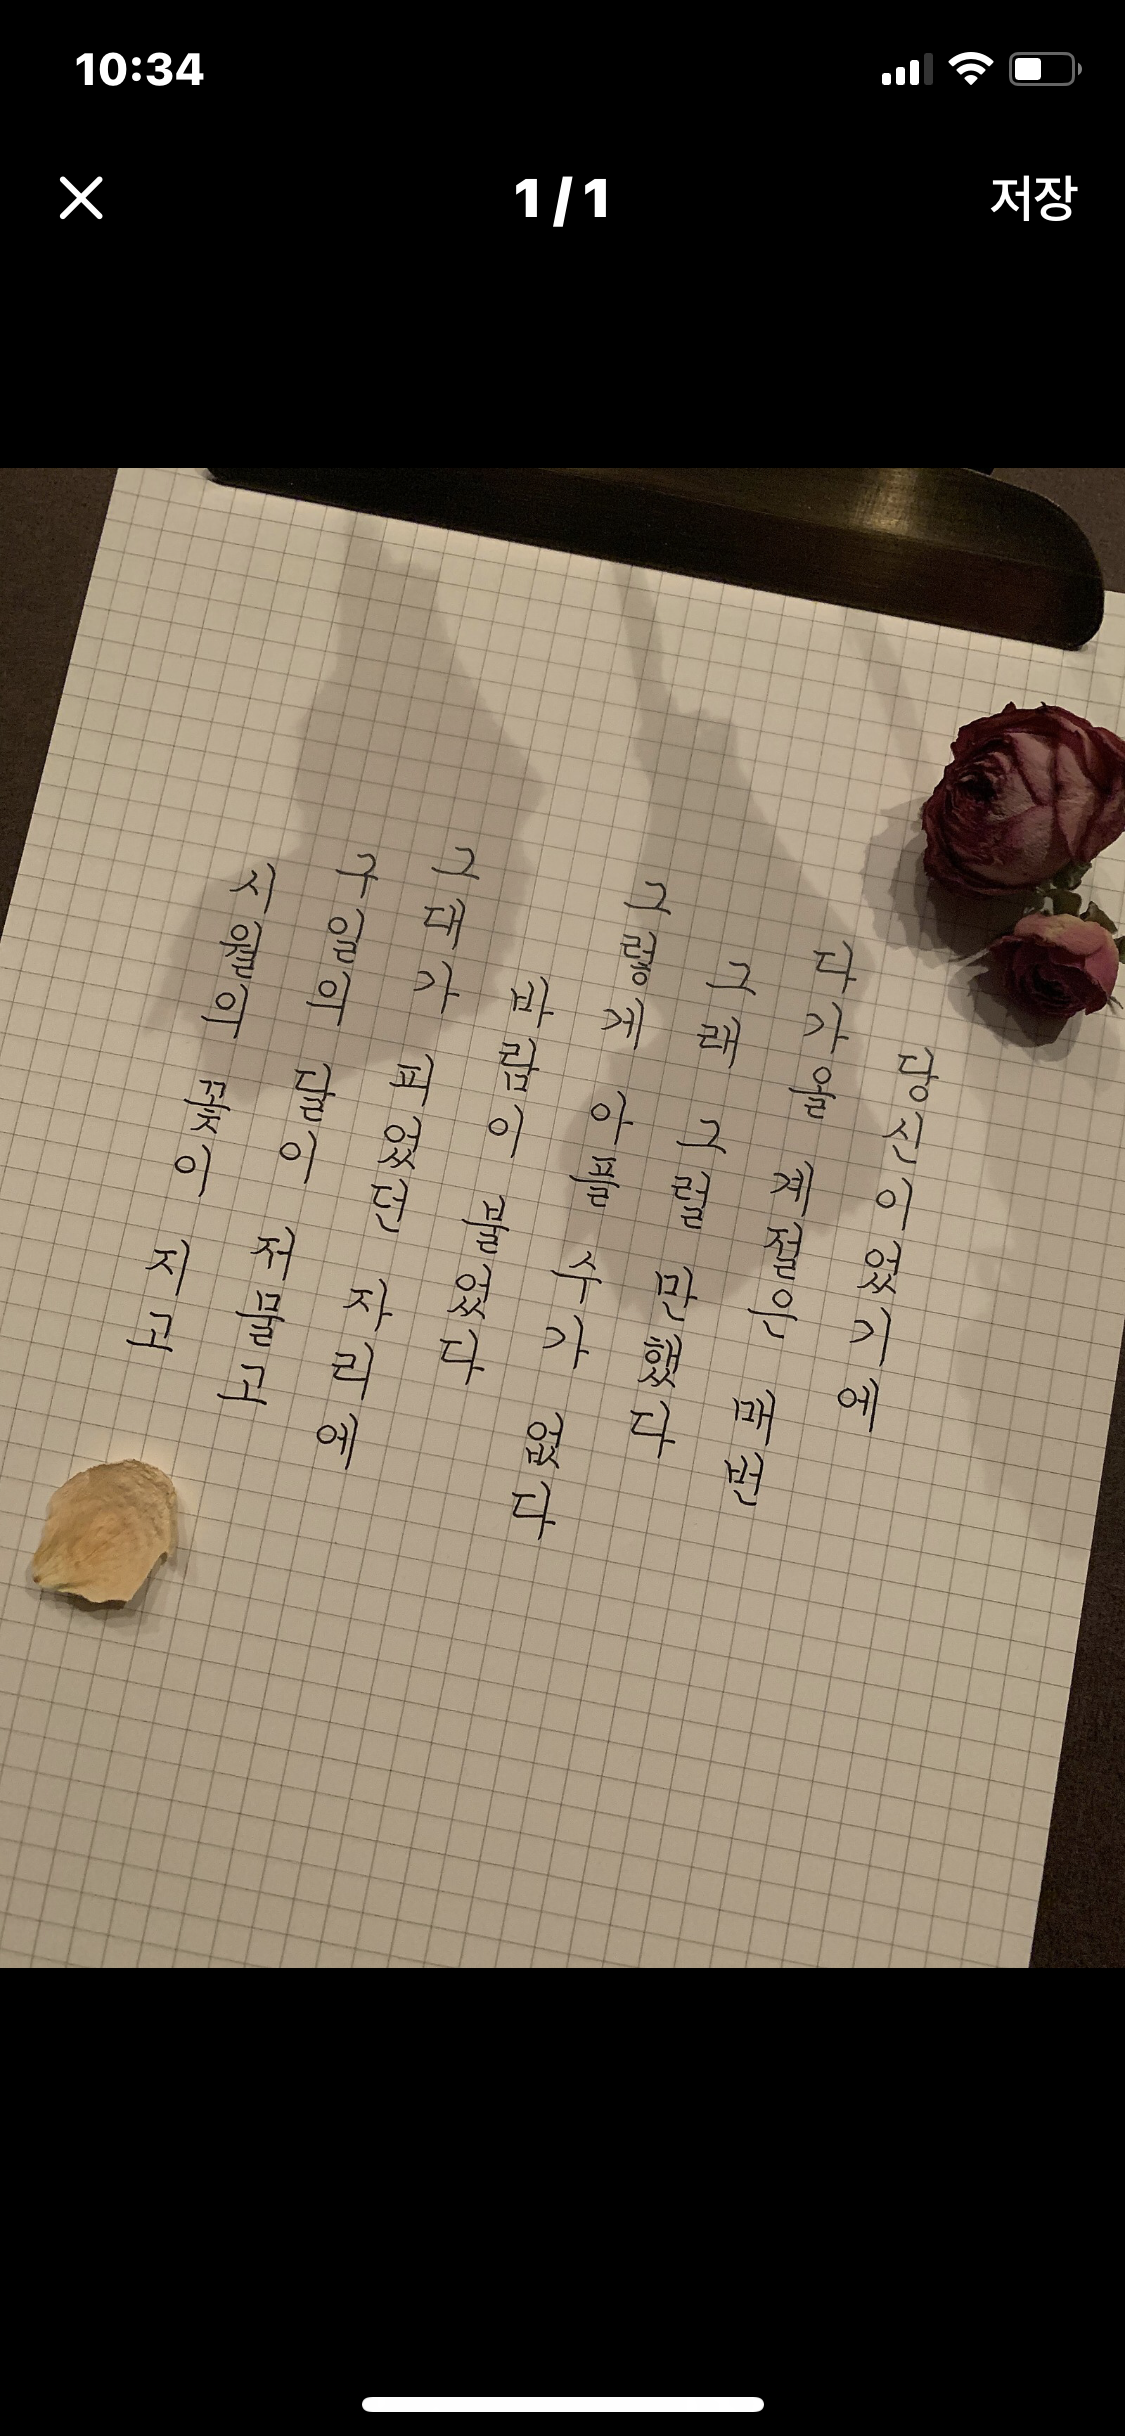 10:34
1/1
저장
시월의 꽃이 지고
구일의 달이 저물고
그대가 피었던 자리에
바람이 불었다
그렇게 아플 수가 없다
그래 그럴 만했다
다가올 계절은 매번
당신이었기에